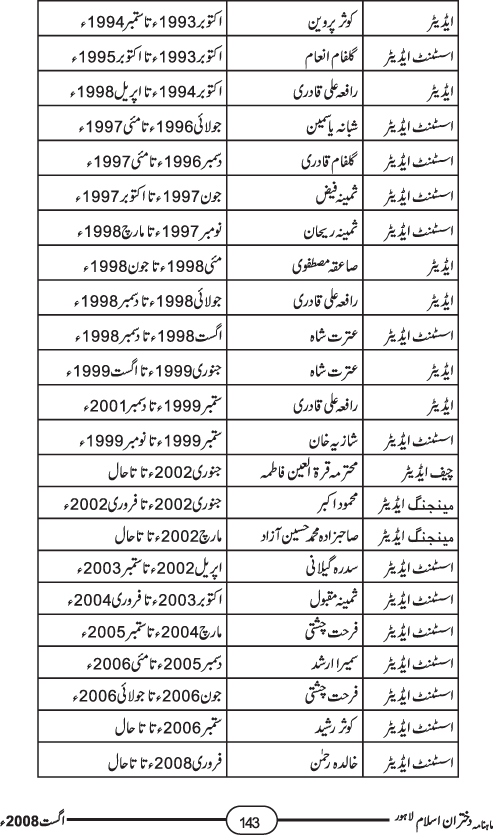 ایڈیٹر کوثر پروین اکتوبر 1993ء تا ستمبر 1994ء
اسسٹنٹ ایڈیٹر گلفام انعام اکتوبر 1993ء تا اکتوبر 1995ء
ایڈیٹر رافعہ علی قادری اکتوبر 1994ء تا اپریل 1998ء
اسسٹنٹ ایڈیٹر شبانہ یاسمین جولائی 1996ء تا مئی 1997ء
اسسٹنٹ ایڈیٹر گلفام قادری دسمبر 1996ء تا مئی 1997ء
اسسٹنٹ ایڈیٹر ثمینہ فیض جون 1997ء تا اکتوبر 1997ء
اسسٹنٹ ایڈیٹر ثمینہ ریحان نومبر 1997ء تا مارچ 1998ء
ایڈیٹر صاعقہ مصطفوی مئی 1998ء تا جون 1998ء
ایڈیٹر رافعہ علی قادری جولائی 1998ء تا دسمبر 1998ء
اسسٹنٹ ایڈیٹر عترت شاہ اگست 1998ء تا دسمبر 1998ء
ایڈیٹر عترت شاہ جنوری 1999ء تا اگست 1999ء
ایڈیٹر رافعہ علی قادری ستمبر 1999ء تا دسمبر 2001ء
اسسٹنٹ ایڈیٹر شازیہ خان ستمبر 1999ء تا نومبر 1999ء
چیف ایڈیٹر محترمہ قرۃ العین فاطمہ جنوری 2002ء تا تاحال
مینجنگ ایڈیٹر محمود اکبر جنوری 2002ء تا فروری 2002ء
مینجنگ ایڈیٹر صاحبزادہ محمد حسین آزاد مارچ 2002ء تا تاحال
اسسٹنٹ ایڈیٹر سدرہ گیلانی اپریل 2002ء تا ستمبر 2003ء
اسسٹنٹ ایڈیٹر ثمینہ مقبول اکتوبر 2003ء تا فروری 2004ء
اسسٹنٹ ایڈیٹر فرحت چشتی مارچ 2004ء تا ستمبر 2005ء
اسسٹنٹ ایڈیٹر سمیرا ارشد دسمبر 2005ء تا مئی 2006ء
اسسٹنٹ ایڈیٹر فرحت چشتی جون 2006ء تا جولائی 2006ء
اسسٹنٹ ایڈیٹر کوثر رشید ستمبر 2006ء تا تا حال
اسسٹنٹ ایڈیٹر خالدہ رحمٰن فروری 2008ء تا تاحال
ماہنامہ دختران اسلام لاہور 143 اگست 2008ء